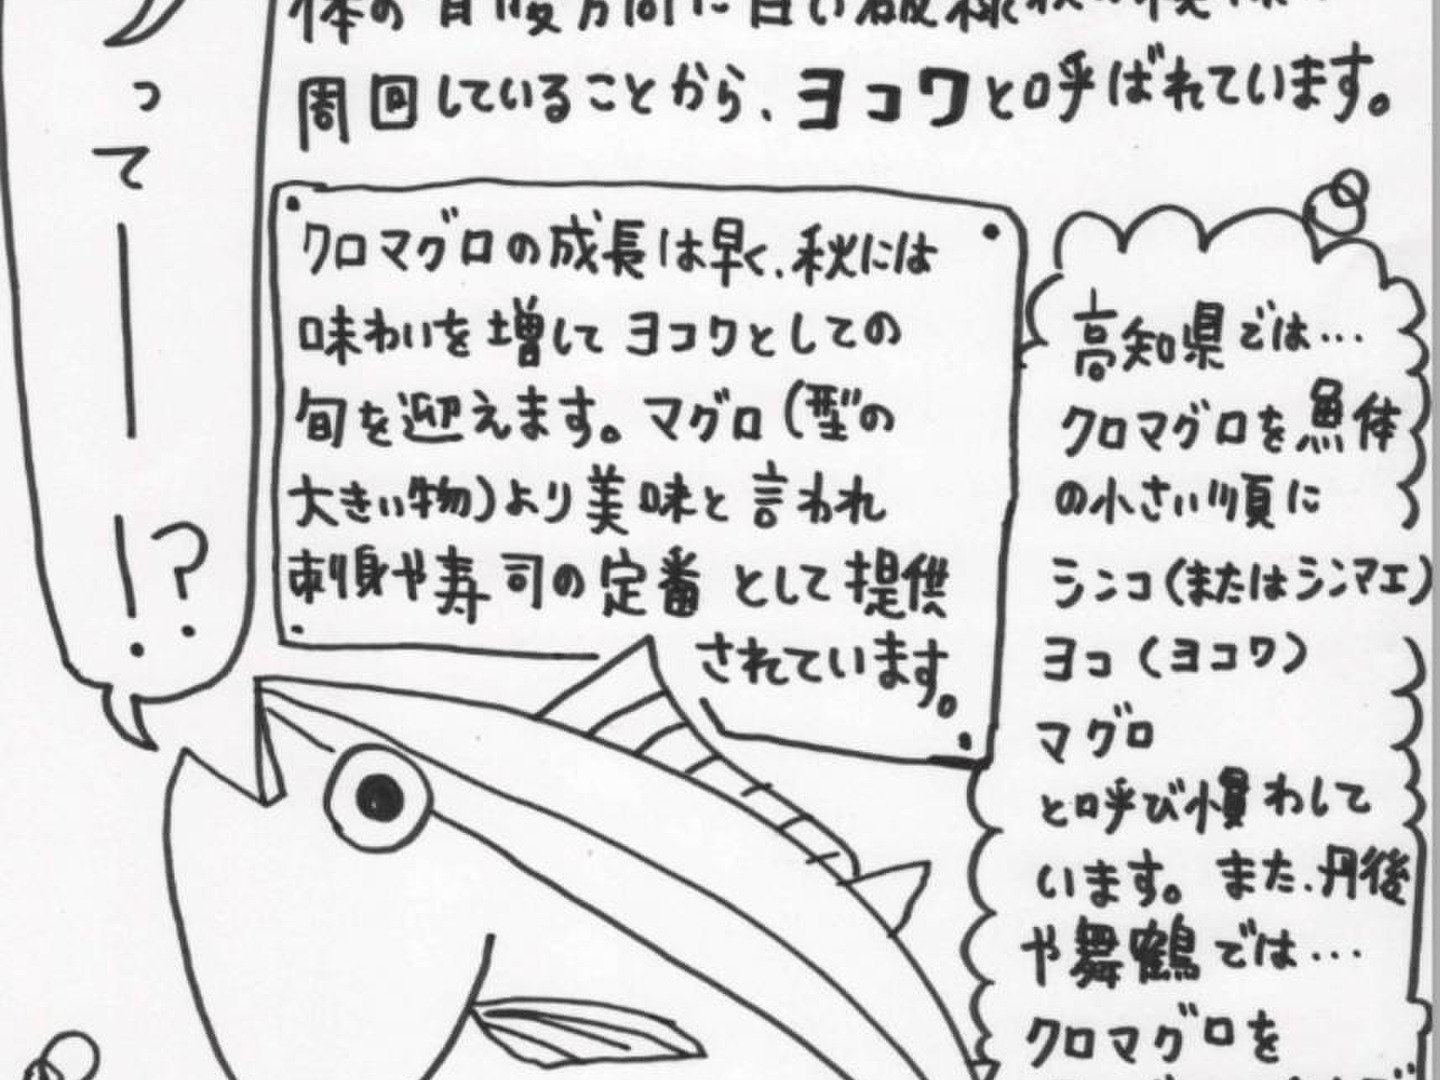 体の背腹方向に白い
周回していることから、ヨコワと呼ばれています。
って――!?
クロマグロの成長は早く、秋には
味わいを増してヨコワとしての
旬を迎えます。マグロ(型の
大きい物)より美味と言われ
刺身や寿司の定番として提供
されています。
高知県では…
クロマグロを魚体
の小さい順に
シンコ(またはシンマエ)
ヨコ(ヨコワ)
マグロ
と呼び慣わして
います。また、丹後
や舞鶴では…
クロマグロを